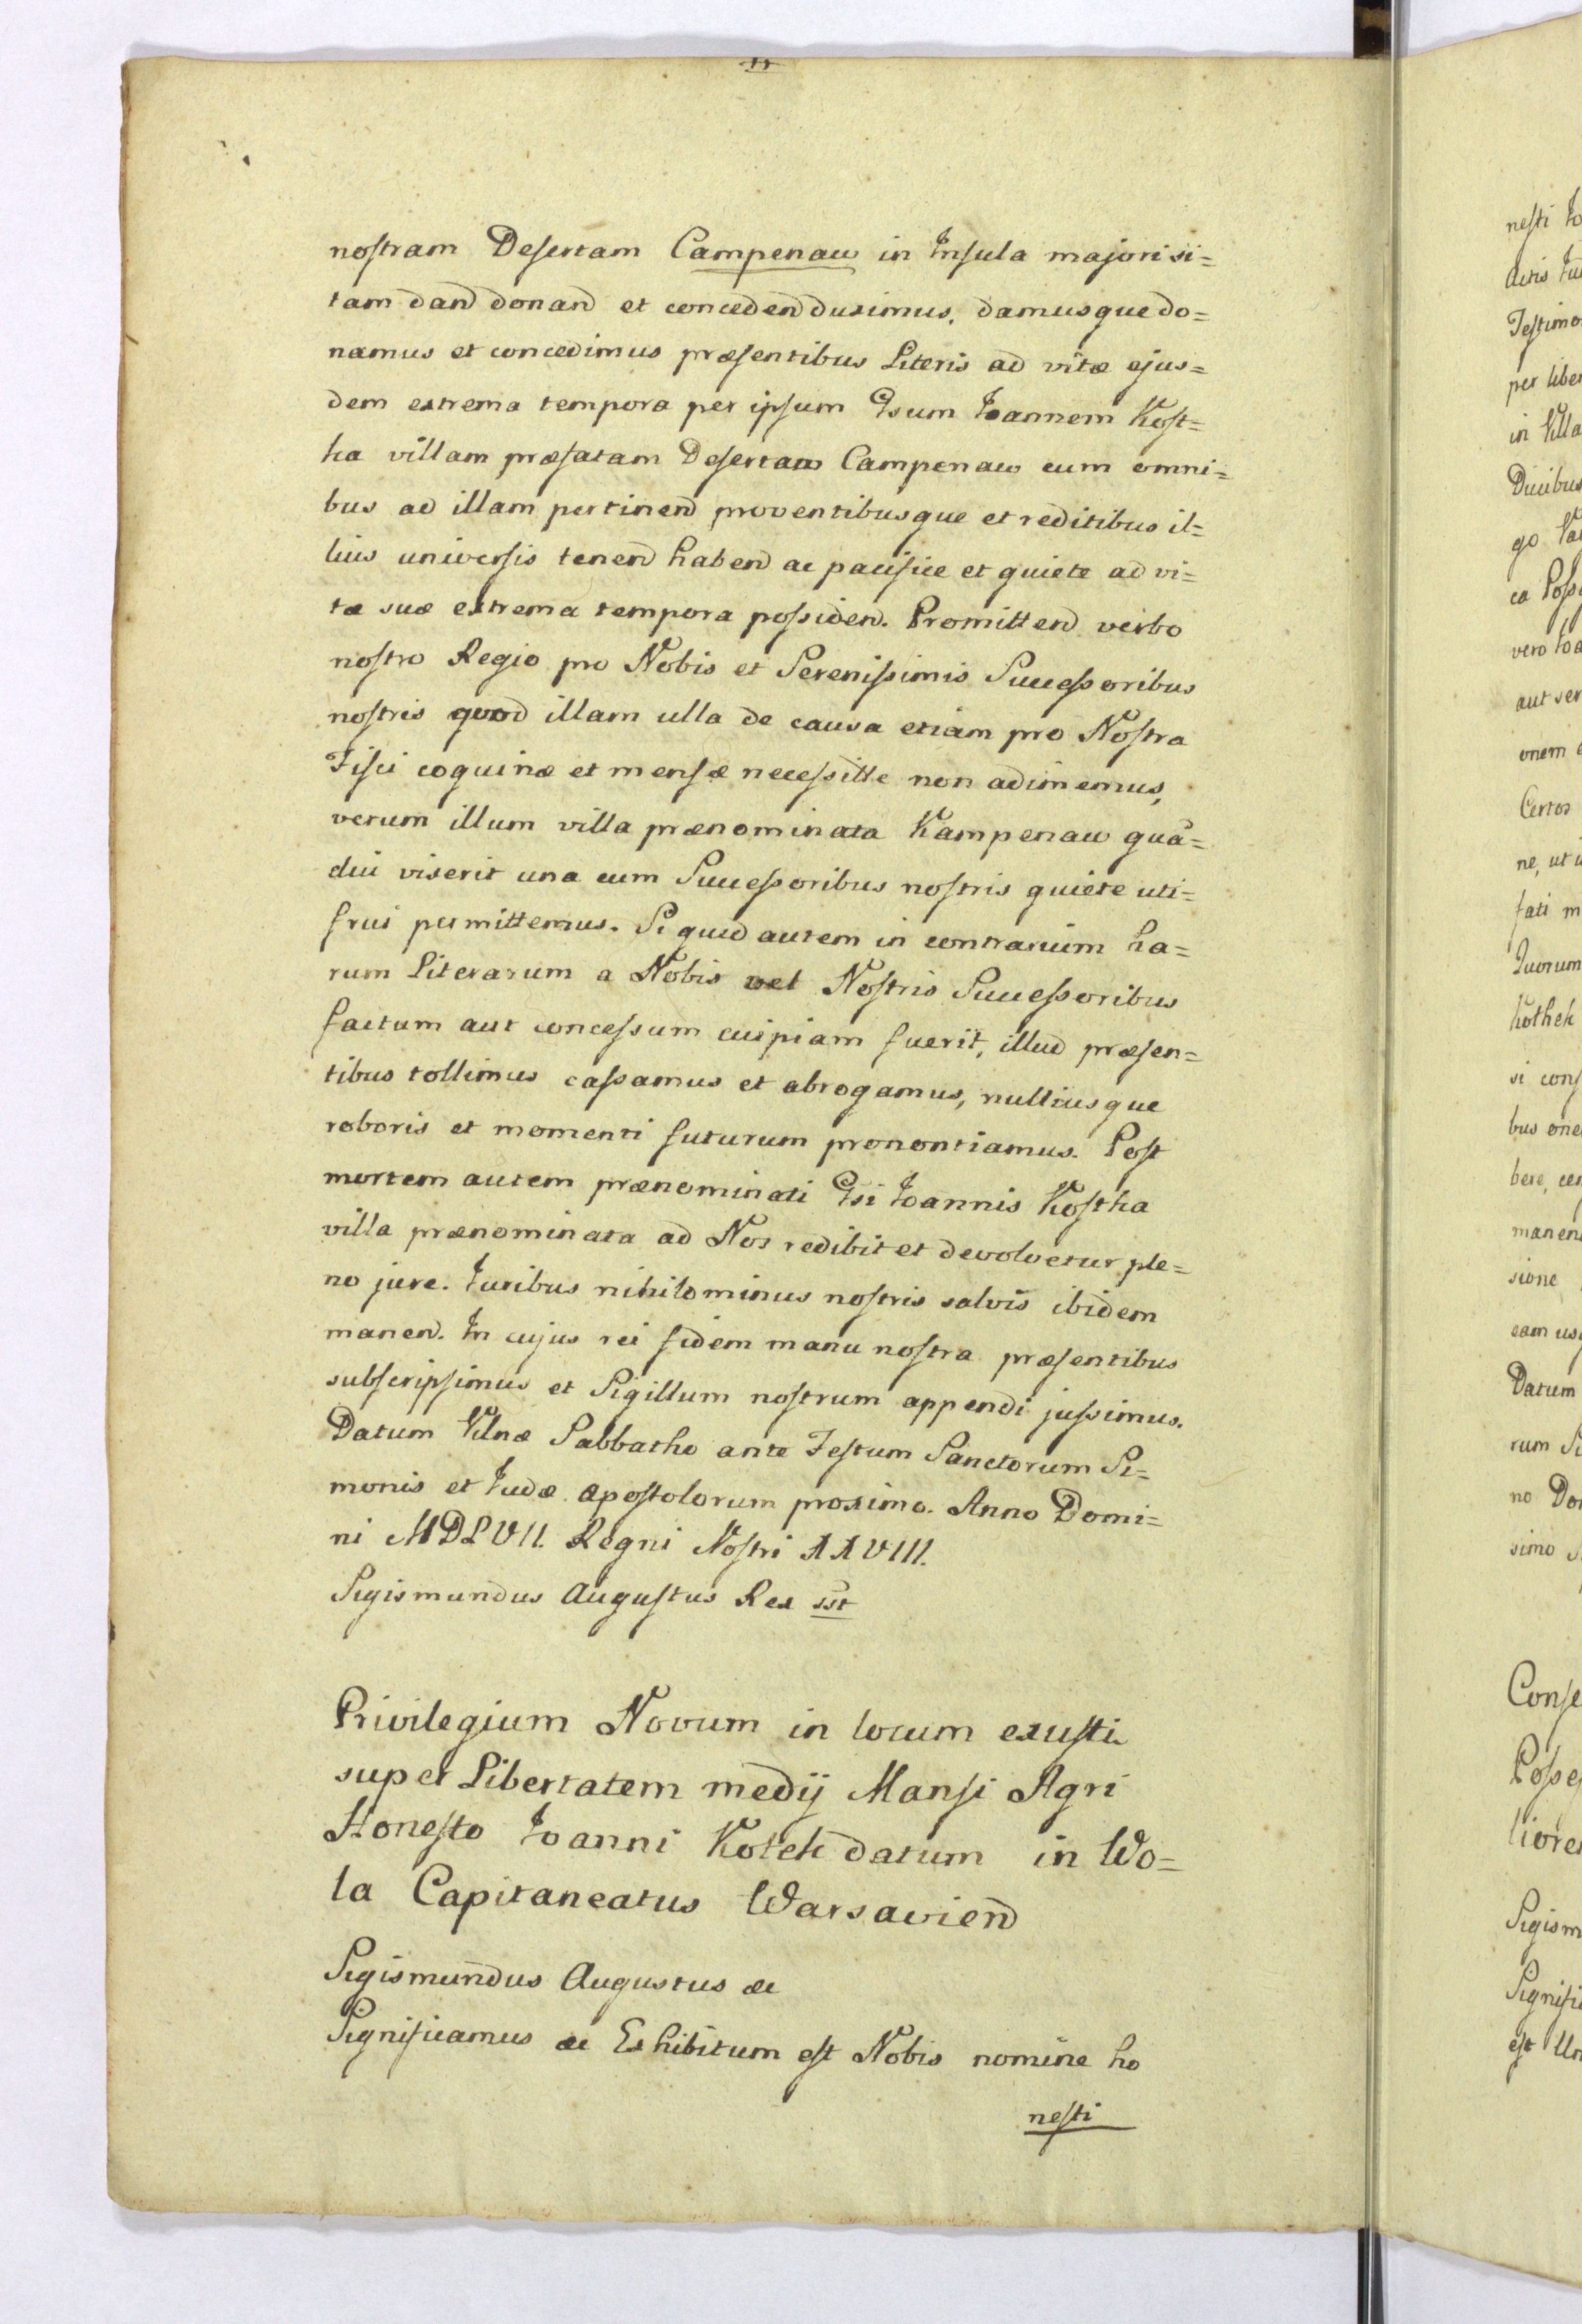 nostram Desertam Campenau in Insula majori si=
tam dand donand et concedend duximus, damusque do=
namus et concedimus præsentibus Literis ad vitæ ejus=
dem extrema tempora per ipsum Gsum Ioannem Kost=
ka villam præfatam Desertam Campenau cum omni=
bus ad illam pertinend proventibusque et reditibus il=
lius universis tenend habend ac pacifice et quiete ad vi=
tæ suæ extrema tempora possidend. Promittend verbo
nostro Regio pro Nobis et Serenissimis Successoribus
nostris quod illam ulla de causa etiam pro Nostra
Fisci coquinæ et mensæ necessitte non adimemus,
verum illum villa prænominata Kampenau qua=
diu vixerit una cum Successoribus nostris quiete uti=
frui permittemus. Si quid autem in contrarium ha=
rum Literarum a Nobis vel Nostris Successoribus
factum aut concessum cuipiam fuerit, illud præsen=
tibus tollimus cassamus et abrogamus, nulliusque
roboris et momenti futurum pronontiamus. Post
mortem autem prænominati Gsi Ioannis Kostka
villa prænominata ad Nos redibit et devolvetur ple=
no jure. Iuribus nihilominus nostris salvis ibidem
manend. In cujus rei fidem manu nostra præsentibus
subscripsimus et Sigillum nostrum appendi jussimus.
Datum Vilnæ Sabbatho ante Festum Sanctorum Si=
monis et Iudæ apostolorum proximo. Anno Domi=
ni MDLVII. Regni Nostri XXVIII.
Sigismundus Augustus Rex sst
Privilegium Novum in locum exusti
super Libertatem medij Mansi Agri
Honesto Ioanni Kotek datum in Wo=
la Capitaneatus Warsaviend
Sigismundus Augustus &c
Significamus &c Exhibitum est Nobis nomine ho
nesti
nesti Io
Testimo
per liber
in Villa
Ducibus
go Va
ca Poss
vero Ioa
aut ser
onem
Certos
ne, ut
fati m
Quorum
Kothek
si cons
bus one
bere, cen
manen
sione
eam us
Datum
rum Si
no Do
simo
Conse
Posse
liore
Sigism
Signifi
est Un